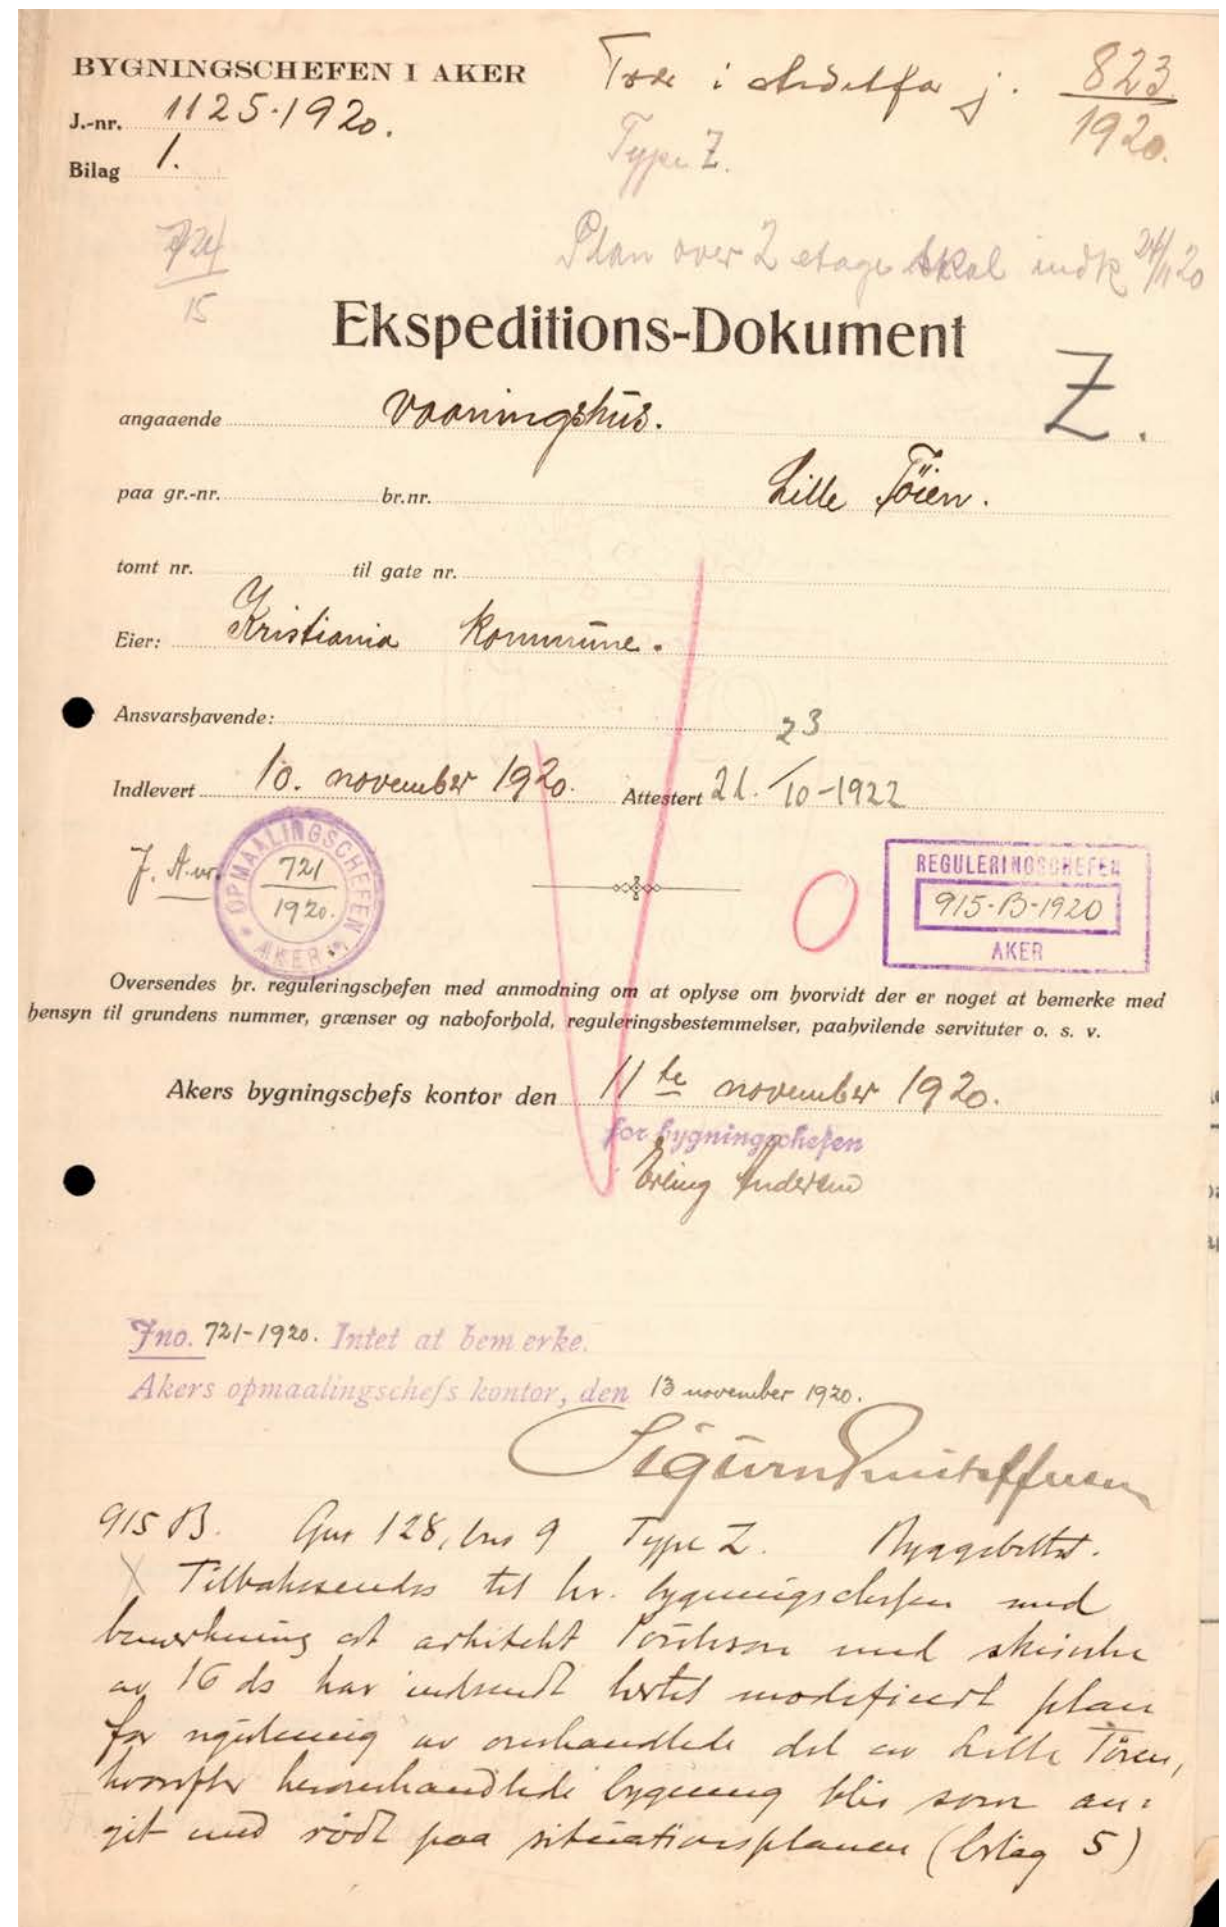 BYGNINGSCHEFEN I AKER
J.-nr. 1125-1920.
Bilag 1.
i j. 823
1920.
Type Z.
724
15
Plan over 2 etage skal indk 24/11 20
Ekspeditions-Dokument
Z.
angaaende vaaningshus.
paa gr.-nr. br.nr. Lille Töien.
tomt nr. til gate nr.
Eier: Kristiania Kommune.
Ansvarshavende:
23
Indlevert 10. november 1920. Attestert 21. /10-1922
J. A. nr.
OPMAALINGSCHEFEN
721
1920.
AKER
REGULERINGSCHEFEN
915-B-1920
AKER
Oversendes hr. reguleringschefen med anmodning om at oplyse om hvorvidt der er noget at bemerke med
hensyn til grundens nummer, grænser og naboforhold, reguleringsbestemmelser, paahvilende servituter o. s. v.
Akers bygningschefs kontor den 11te november 1920.
for bygningschefen
Erling Andersen
Jno. 721-1920. Intet at bemerke.
Akers opmaalingschefs kontor, den 13 november 1920.
915 B. Gnr 128, bnr 9 Type Z.
Tilbakesendes til hr. bygningschefen med
bemerkning at arkitekt med
av 16 ds har indsendt hertil modificert plan
for regulering av omhandlede del av Lille Töien,
hvorefter heromhandlede bygning blir som an-
git med rödt paa situationsplanen (bilag 5)